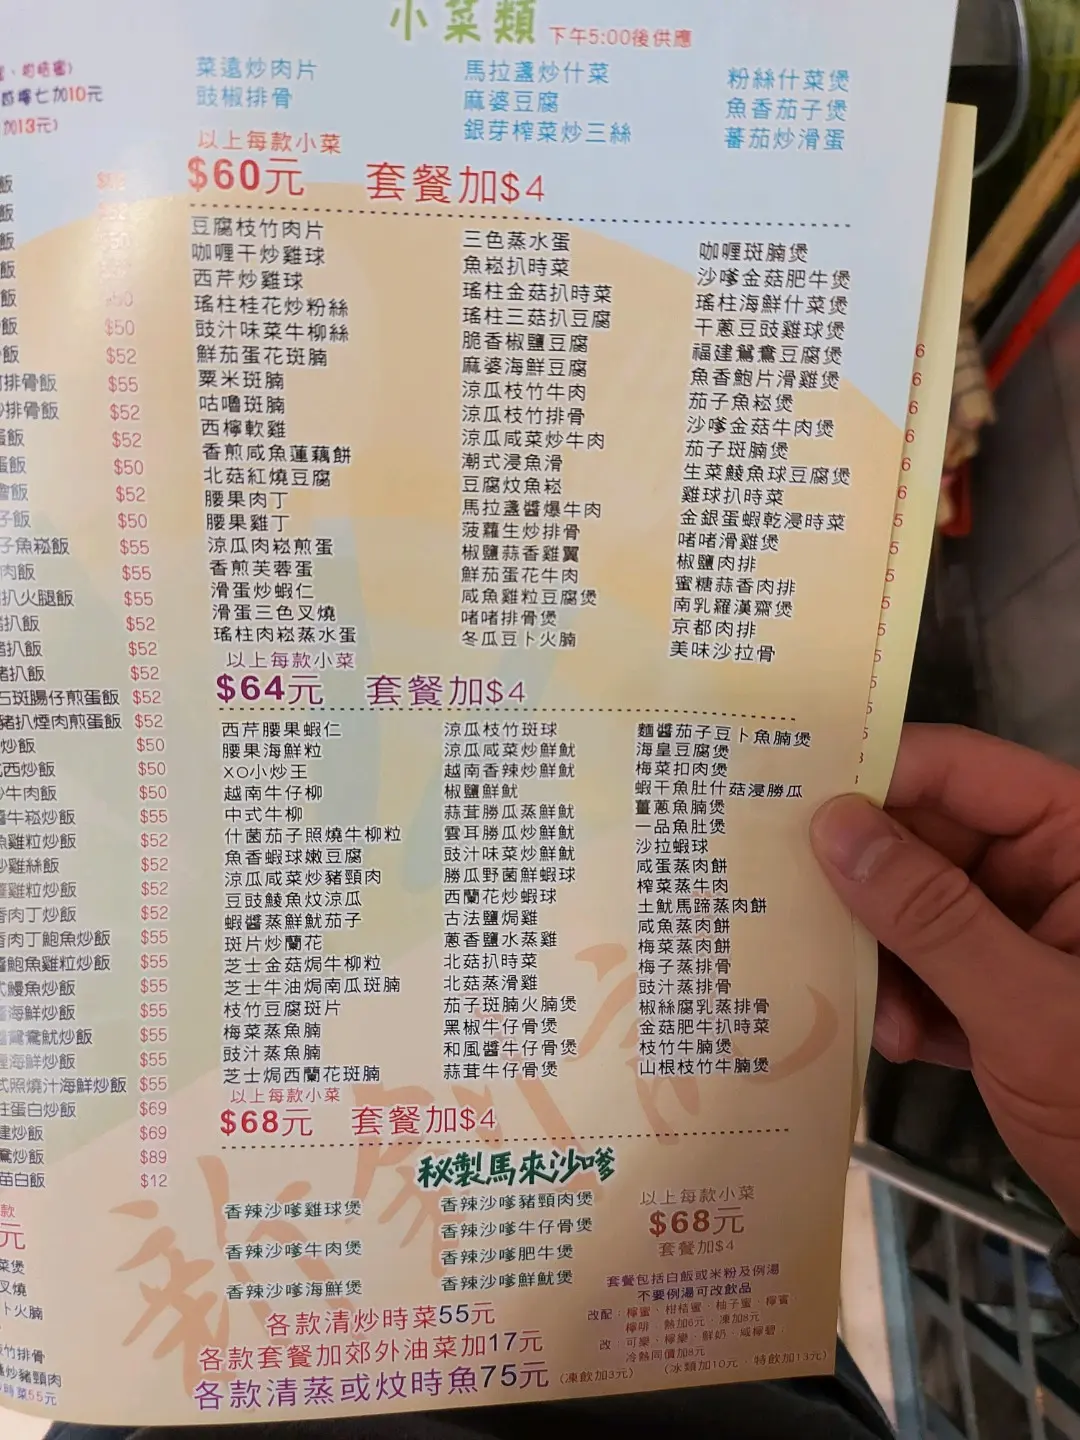 小菜類 下午5:00後供應
菜遠炒肉片
豉椒排骨
馬拉盞炒什菜
麻婆豆腐
銀芽榨菜炒三絲
粉絲什菜煲
魚香茄子煲
蕃茄炒滑蛋
以上每款小菜
$60元 套餐加$4
豆腐枝竹肉片
咖喱干炒雞球
西芹炒雞球
瑤柱桂花炒粉絲
豉汁味菜牛柳絲
鮮茄蛋花斑腩
粟米斑腩
咕嚕斑腩
西檸軟雞
香煎咸魚蓮藕餅
北菇紅燒豆腐
腰果肉丁
腰果雞丁
涼瓜肉崧煎蛋
香煎芙蓉蛋
滑蛋炒蝦仁
滑蛋三色叉燒
瑤柱肉崧蒸水蛋
三色蒸水蛋
魚崧扒時菜
瑤柱金菇扒時菜
瑤柱三菇扒豆腐
脆香椒鹽豆腐
麻婆海鮮豆腐
涼瓜枝竹牛肉
涼瓜枝竹排骨
涼瓜咸菜炒牛肉
潮式浸魚滑
豆腐炆魚崧
馬拉盞醬爆牛肉
菠蘿生炒排骨
椒鹽蒜香雞翼
鮮茄蛋花牛肉
咸魚雞粒豆腐煲
啫啫排骨煲
冬瓜豆卜火腩
咖喱斑腩煲
沙嗲金菇肥牛煲
瑤柱海鮮什菜煲
干蔥豆豉雞球煲
福建鴛鴦豆腐煲
魚香鮑片滑雞煲
茄子魚崧煲
沙嗲金菇牛肉煲
茄子斑腩煲
生菜鯪魚球豆腐煲
雞球扒時菜
金銀蛋蝦乾浸時菜
啫啫滑雞煲
椒鹽肉排
蜜糖蒜香肉排
南乳羅漢齋煲
京都肉排
美味沙拉骨
以上每款小菜
$64元 套餐加$4
西芹腰果蝦仁
腰果海鮮粒
XO小炒王
越南牛仔柳
中式牛柳
什菌茄子照燒牛柳粒
魚香蝦球嫩豆腐
涼瓜咸菜炒豬頸肉
豆豉鯪魚炆涼瓜
蝦醬蒸鮮魷茄子
斑片炒蘭花
芝士金菇焗牛柳粒
芝士牛油焗南瓜斑腩
枝竹豆腐斑片
梅菜蒸魚腩
豉汁蒸魚腩
芝士焗西蘭花斑腩
涼瓜枝竹斑球
涼瓜咸菜炒鮮魷
越南香辣炒鮮魷
椒鹽鮮魷
蒜茸勝瓜蒸鮮魷
雲耳勝瓜炒鮮魷
豉汁味菜炒鮮魷
勝瓜野菌鮮蝦球
西蘭花炒蝦球
古法鹽焗雞
蔥香鹽水蒸雞
北菇扒時菜
北菇蒸滑雞
茄子斑腩火腩煲
黑椒牛仔骨煲
和風醬牛仔骨煲
蒜茸牛仔骨煲
麵醬茄子豆卜魚腩煲
海皇豆腐煲
梅菜扣肉煲
蝦干魚肚什菇浸勝瓜
薑蔥魚腩煲
一品魚肚煲
沙拉蝦球
咸蛋蒸肉餅
榨菜蒸牛肉
土魷馬蹄蒸肉餅
咸魚蒸肉餅
梅菜蒸肉餅
梅子蒸排骨
豉汁蒸排骨
椒絲腐乳蒸排骨
金菇肥牛扒時菜
枝竹牛腩煲
山根枝竹牛腩煲
以上每款小菜
$68元 套餐加$4
秘製馬來沙嗲
香辣沙嗲雞球煲
香辣沙嗲牛肉煲
香辣沙嗲海鮮煲
香辣沙嗲豬頸肉煲
香辣沙嗲牛仔骨煲
香辣沙嗲肥牛煲
香辣沙嗲鮮魷煲
以上每款小菜
$68元
套餐加$4
套餐包括白飯或米粉及例湯
不要例湯可改飲品
改配：檸蜜、柑桔蜜、柚子蜜、檸賓
檸啡、熱加6元、凍加8元
改：可樂、檸樂、鮮奶、咸檸碧：
冷熱同價加8元
(冰類加10元、特飲加13元)
各款清炒時菜55元
各款套餐加郊外油菜加17元
各款清蒸或炆時魚75元 (凍飲加3元)
加10元
加13元)
飯
飯
飯
飯
飯 $50
飯 $50
飯 $52
排骨飯 $55
排骨飯 $52
蛋飯 $52
蛋飯 $50
飯 $52
子飯 $50
子魚崧飯 $55
肉飯 $55
扒火腿飯 $55
扒飯 $52
扒飯 $52
豬扒飯 $52
石斑腸仔煎蛋飯 $52
豬扒煙肉煎蛋飯 $52
炒飯 $50
西炒飯 $50
牛肉飯 $50
牛崧炒飯 $55
雞粒炒飯 $52
雞絲飯 $52
雞粒炒飯 $52
香肉丁炒飯 $52
香肉丁鮑魚炒飯 $55
鮑魚雞粒炒飯 $55
式鰻魚炒飯 $55
海鮮炒飯 $55
鴛鴦魷炒飯 $55
海鮮炒飯 $55
式照燒汁海鮮炒飯 $55
柱蛋白炒飯 $69
建炒飯 $69
鴦炒飯 $89
苗白飯 $12
款
元
菜煲
叉燒
卜火腩
竹排骨
炒豬頸肉
時菜55元